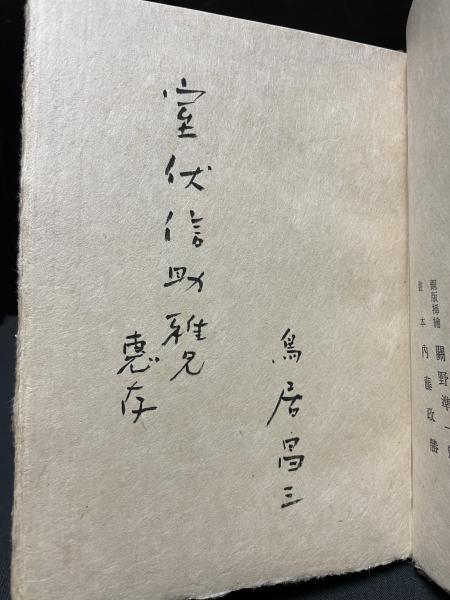 銅版挿繪 關野準一
本 內藤政勝
鳥居昌三
室伏信助雅兄
恵存